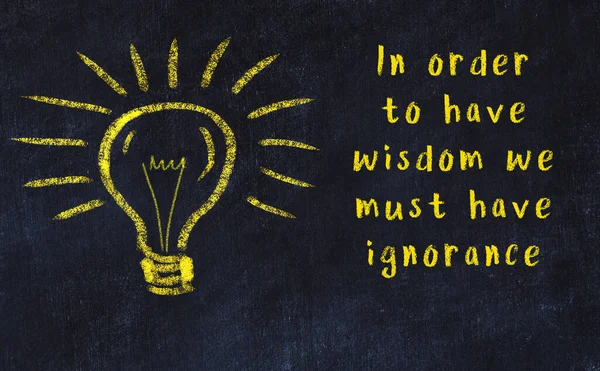 In order
to have
wisdom we
must have
ignorance